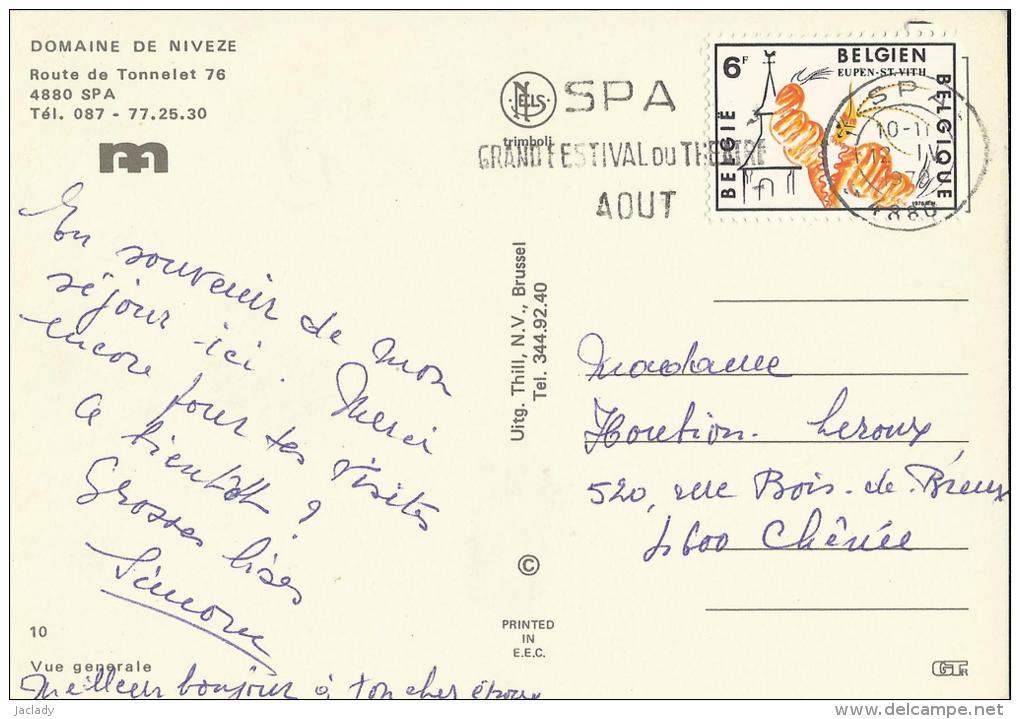 DOMAINE DE NIVEZE
Route de Tonnelet 76
4880 SPA
Tél. 087 - 77.25.30
NELS
trimboli
SPA
GRAND FESTIVAL DU THEATRE
AOUT
6F
BELGIEN
EUPEN-ST. VITH
BELGIË
BELGIQUE
SPA
10-11
12 IV
4880
En souvenir de mon
séjour ici. Merci
encore pour tes visites
A bientôt ?
Grosses bises
Simone
Meilleur bonjour à ton cher époux
Uitg. Thill, N.V., Brussel
Tel. 344.92.40
©
PRINTED
IN
E.E.C.
Madame
Leroux
520, rue Bois-de-Breux
4600 Chênée
10
Vue generale
jaclady
www.delcampe.net